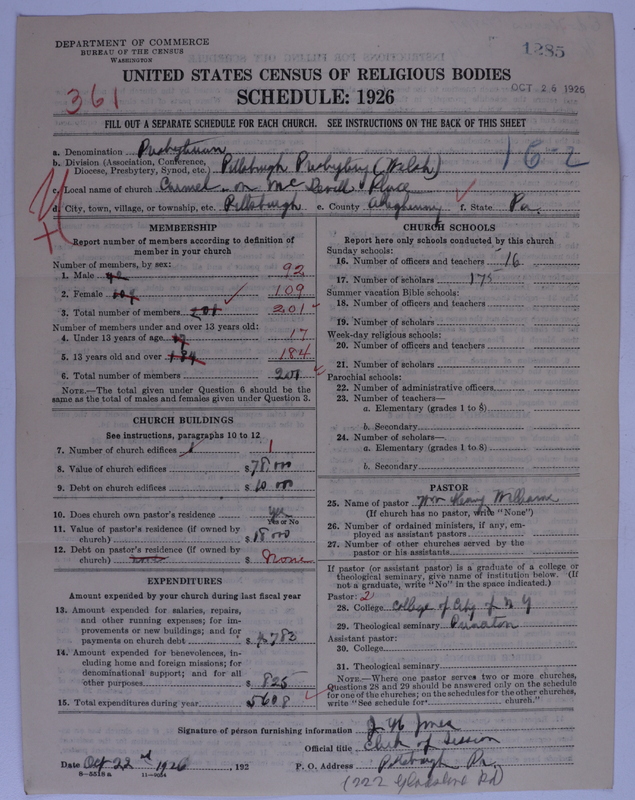 DEPARTMENT OF COMMERCE
BUREAU OF THE CENSUS
WASHINGTON
1285
UNITED STATES CENSUS OF RELIGIOUS BODIES
OCT 26 1926
361
SCHEDULE: 1926
FILL OUT A SEPARATE SCHEDULE FOR EACH CHURCH. SEE INSTRUCTIONS ON THE BACK OF THIS SHEET
a. Denomination
b. Division (Association, Conference, Diocese, Presbytery, Synod, etc.) Pittsburgh Presbytery (Welsh)
16-2
c. Local name of church Carmel on Place
d. City, town, village, or township, etc. Pittsburgh e. County Allegheny f. State Pa.
MEMBERSHIP
Report number of members according to definition of
member in your church
Number of members, by sex:
1. Male 92
2. Female 109
3. Total number of members 201
Number of members under and over 13 years old:
4. Under 13 years of age 17
5. 13 years old and over 184
6. Total number of members 201
NOTE.—The total given under Question 6 should be the
same as the total of males and females given under Question 3.
CHURCH BUILDINGS
See instructions, paragraphs 10 to 12
7. Number of church edifices 1
8. Value of church edifices $
9. Debt on church edifices $
10. Does church own pastor's residence yes
Yes or No
11. Value of pastor's residence (if owned by
church) $
12. Debt on pastor's residence (if owned by
church) $ None
EXPENDITURES
Amount expended by your church during last fiscal year
13. Amount expended for salaries, repairs,
and other running expenses; for im-
provements or new buildings; and for
payments on church debt $
14. Amount expended for benevolences, in-
cluding home and foreign missions; for
denominational support; and for all
other purposes $ 825
15. Total expenditures during year 5608
CHURCH SCHOOLS
Report here only schools conducted by this church
Sunday schools:
16. Number of officers and teachers 16
17. Number of scholars 175
Summer vacation Bible schools:
18. Number of officers and teachers
19. Number of scholars
Week-day religious schools:
20. Number of officers and teachers
21. Number of scholars
Parochial schools:
22. Number of administrative officers
23. Number of teachers—
a. Elementary (grades 1 to 8)
b. Secondary
24. Number of scholars—
a. Elementary (grades 1 to 8)
b. Secondary
PASTOR
25. Name of pastor Wm Williams
(If church has no pastor, write "None")
26. Number of ordained ministers, if any, em-
ployed as assistant pastors
27. Number of other churches served by the
pastor or his assistants
If pastor (or assistant pastor) is a graduate of a college or
theological seminary, give name of institution below. (If
not a graduate, write "No" in the space indicated.)
Pastor: 2
28. College College of City of N.Y
29. Theological seminary Princeton
Assistant pastor:
30. College
31. Theological seminary
NOTE.—Where one pastor serves two or more churches,
Questions 28 and 29 should be answered only on the schedule
for one of the churches; on the schedules for the other churches,
write "See schedule for church."
Signature of person furnishing information Jones
Official title Clerk of Session
Date Oct 22nd 1926, 192 P. O. Address Pittsburgh Pa.
8-5518 a 11-9054